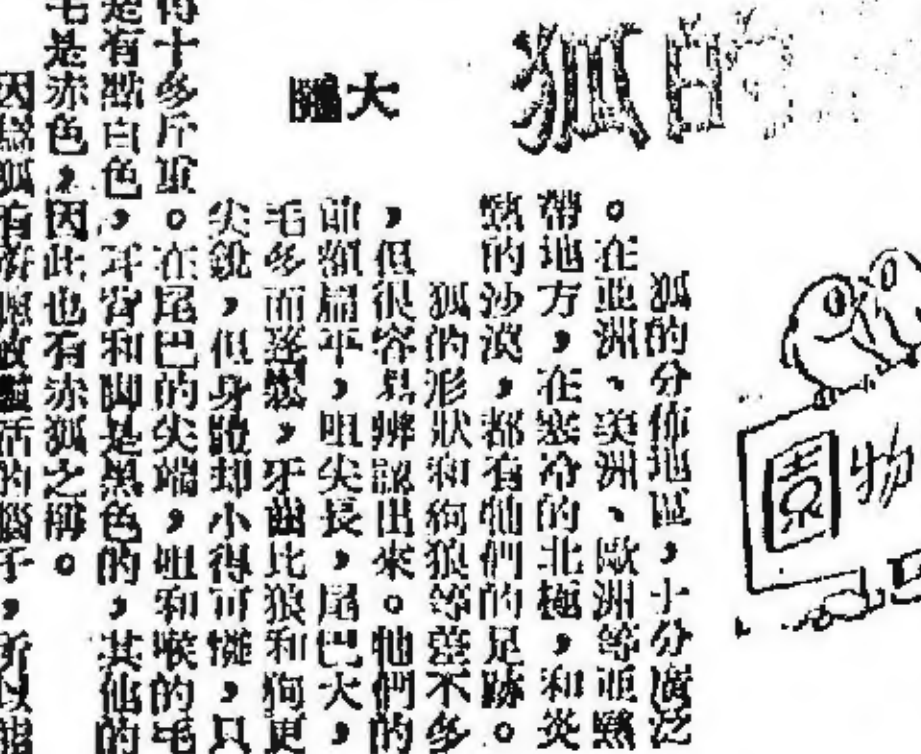 白狐
大
物園
狐的分佈地區，十分廣泛
。在亞洲、美洲、歐洲等亞熱
帶地方，在寒冷的北極，和炎
熱的沙漠，都有牠們的足跡。
狐的形狀和狗狼等差不多
，但很容易辨認出來。牠們的
前額扁平，咀尖長，尾巴大，
毛多而蓬鬆，牙齒比狼和狗更
尖銳，但身體却小得可憐，只
得十多斤重。在尾巴的尖端，咀和喉的毛
是有點白色，耳背和脚是黑色的，其他的
毛是赤色，因此也有赤狐之稱。
因爲狐有活的腦子，所以能